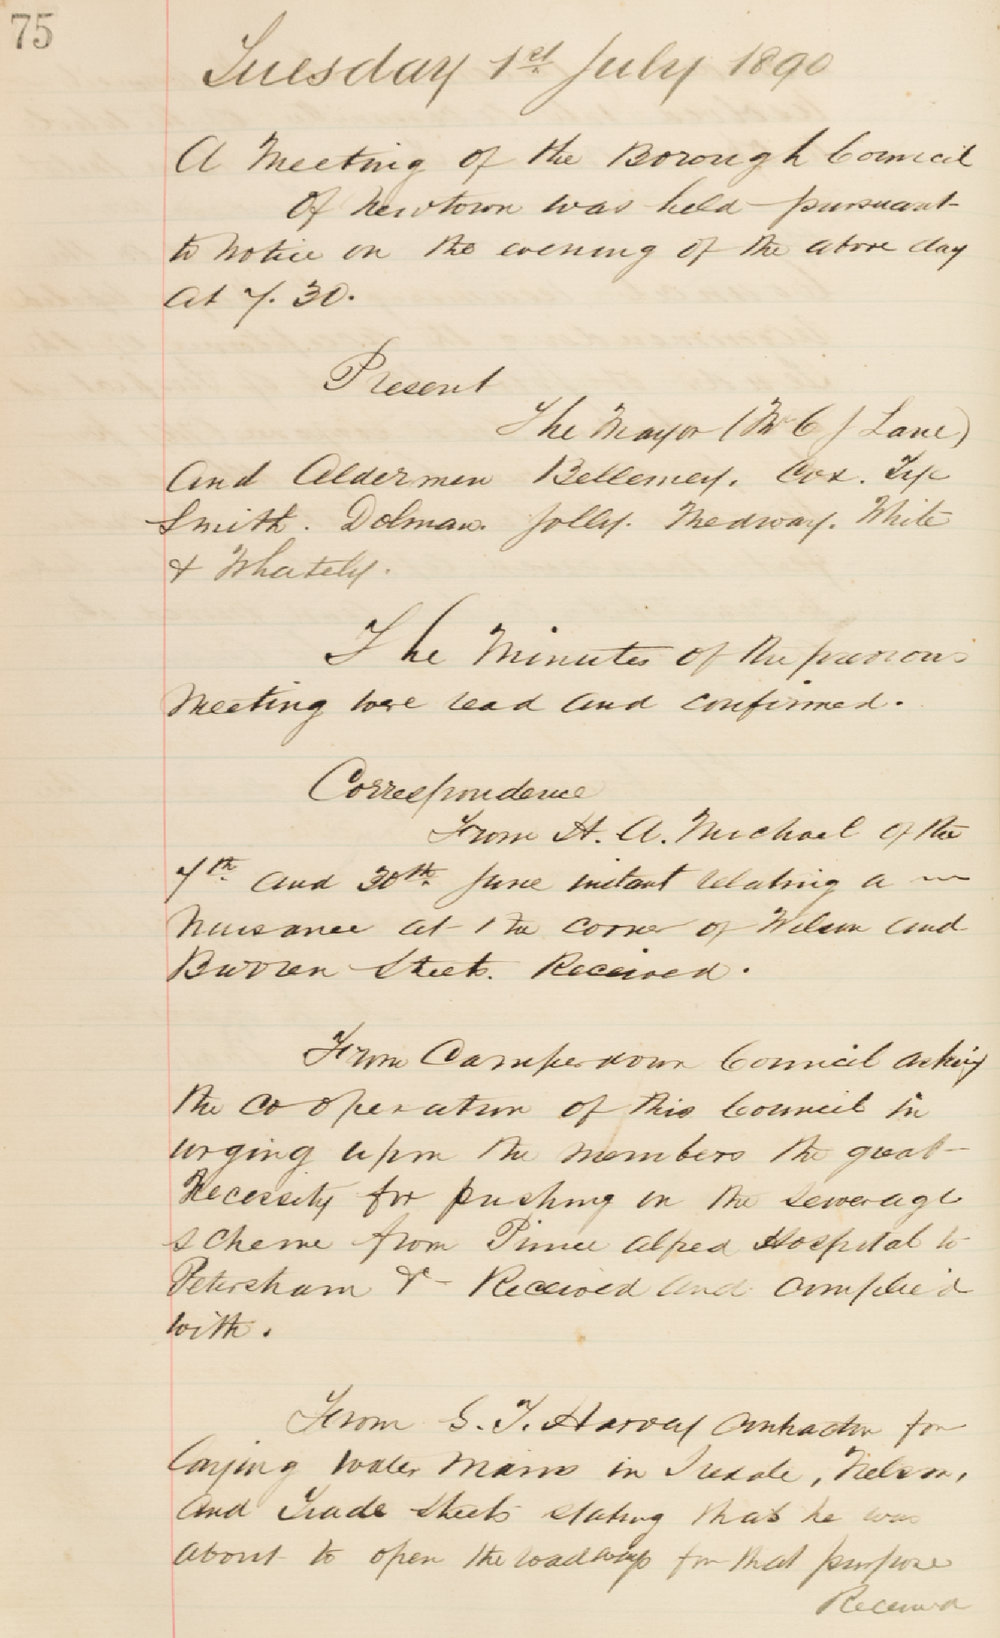 75
Tuesday 1st July 1890
A Meeting of the Borough Council
Of Newtown was held pursuant
to Notice on the evening of the above day
at 7.30.
Present
The Mayor (Mr C J Lane)
And Aldermen Bellemey. Cox.
Smith. Dolman. Jolly. Medway. White
& Whately.
The Minutes of the previous
Meeting were read and confirmed.
Correspondence
From H. A. Michael of the
7th and 30th June instant relating a
Nuisance at the corner of Wilson and
Burren Streets. Received.
From Camperdown Council asking
the co operation of this Council in
urging upon the members the great
Necessity for pushing on the sewerage
scheme from Prince Alfred Hospital to
Petersham & Received and complied
with.
From S. T. Harvey Contractor for
laying water Mains in Iredale, Nelson,
and Trade Streets stating that he was
about to open the roadways for that purpose
Received